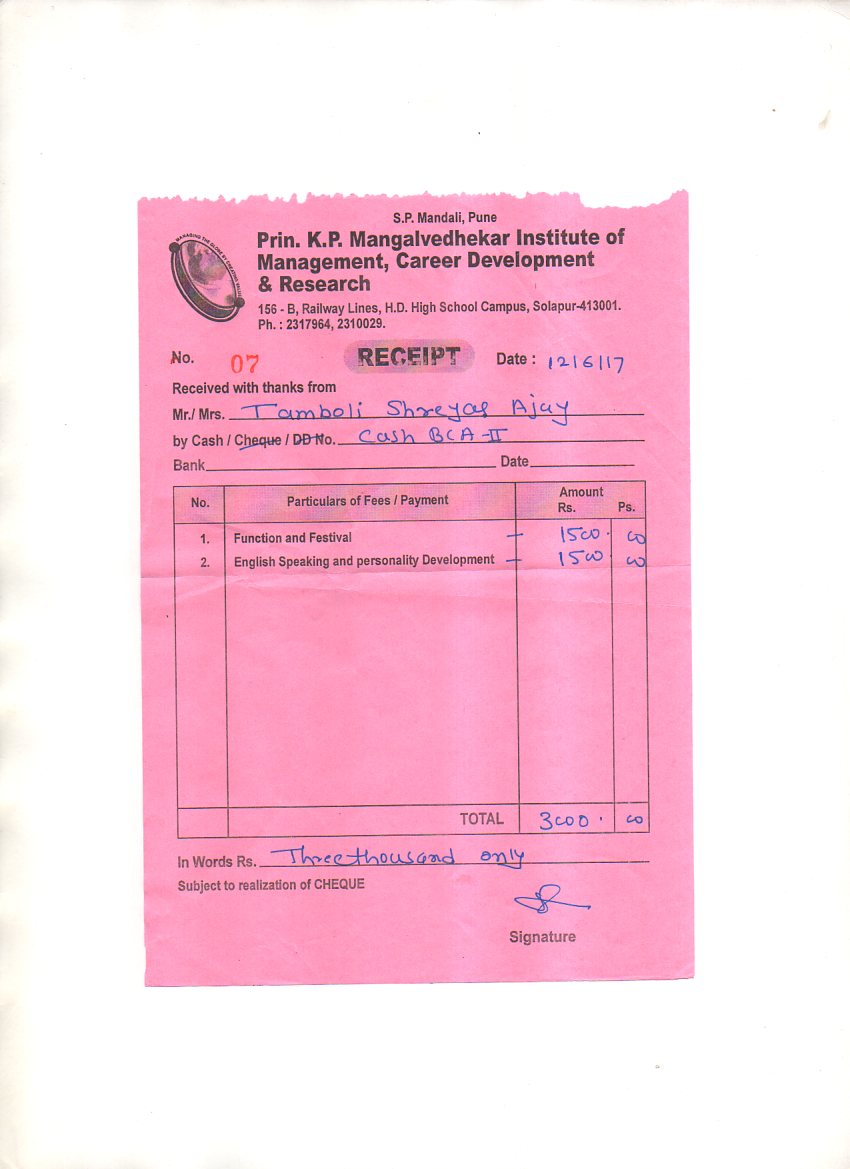 S.P. Mandali, Pune
Prin. K.P. Mangalvedhekar Institute of
Management, Career Development
& Research
156 - B, Railway Lines, H.D. High School Campus, Solapur-413001.
Ph. : 2317964, 2310029.
MANAGING THE GLOBE BY CREATING VALUE
No. 07 RECEIPT Date : 12/6/17
Received with thanks from
Mr./ Mrs. Tamboli Shreyas Ajay
by Cash / Cheque / DD No. Cash BCA-II
Bank Date
No. Particulars of Fees / Payment Amount
Rs. Ps.
1. Function and Festival — 1500. 00
2. English Speaking and personality Development — 1500 00
TOTAL 3000. 00
In Words Rs. Three thousand only
Subject to realization of CHEQUE
Signature